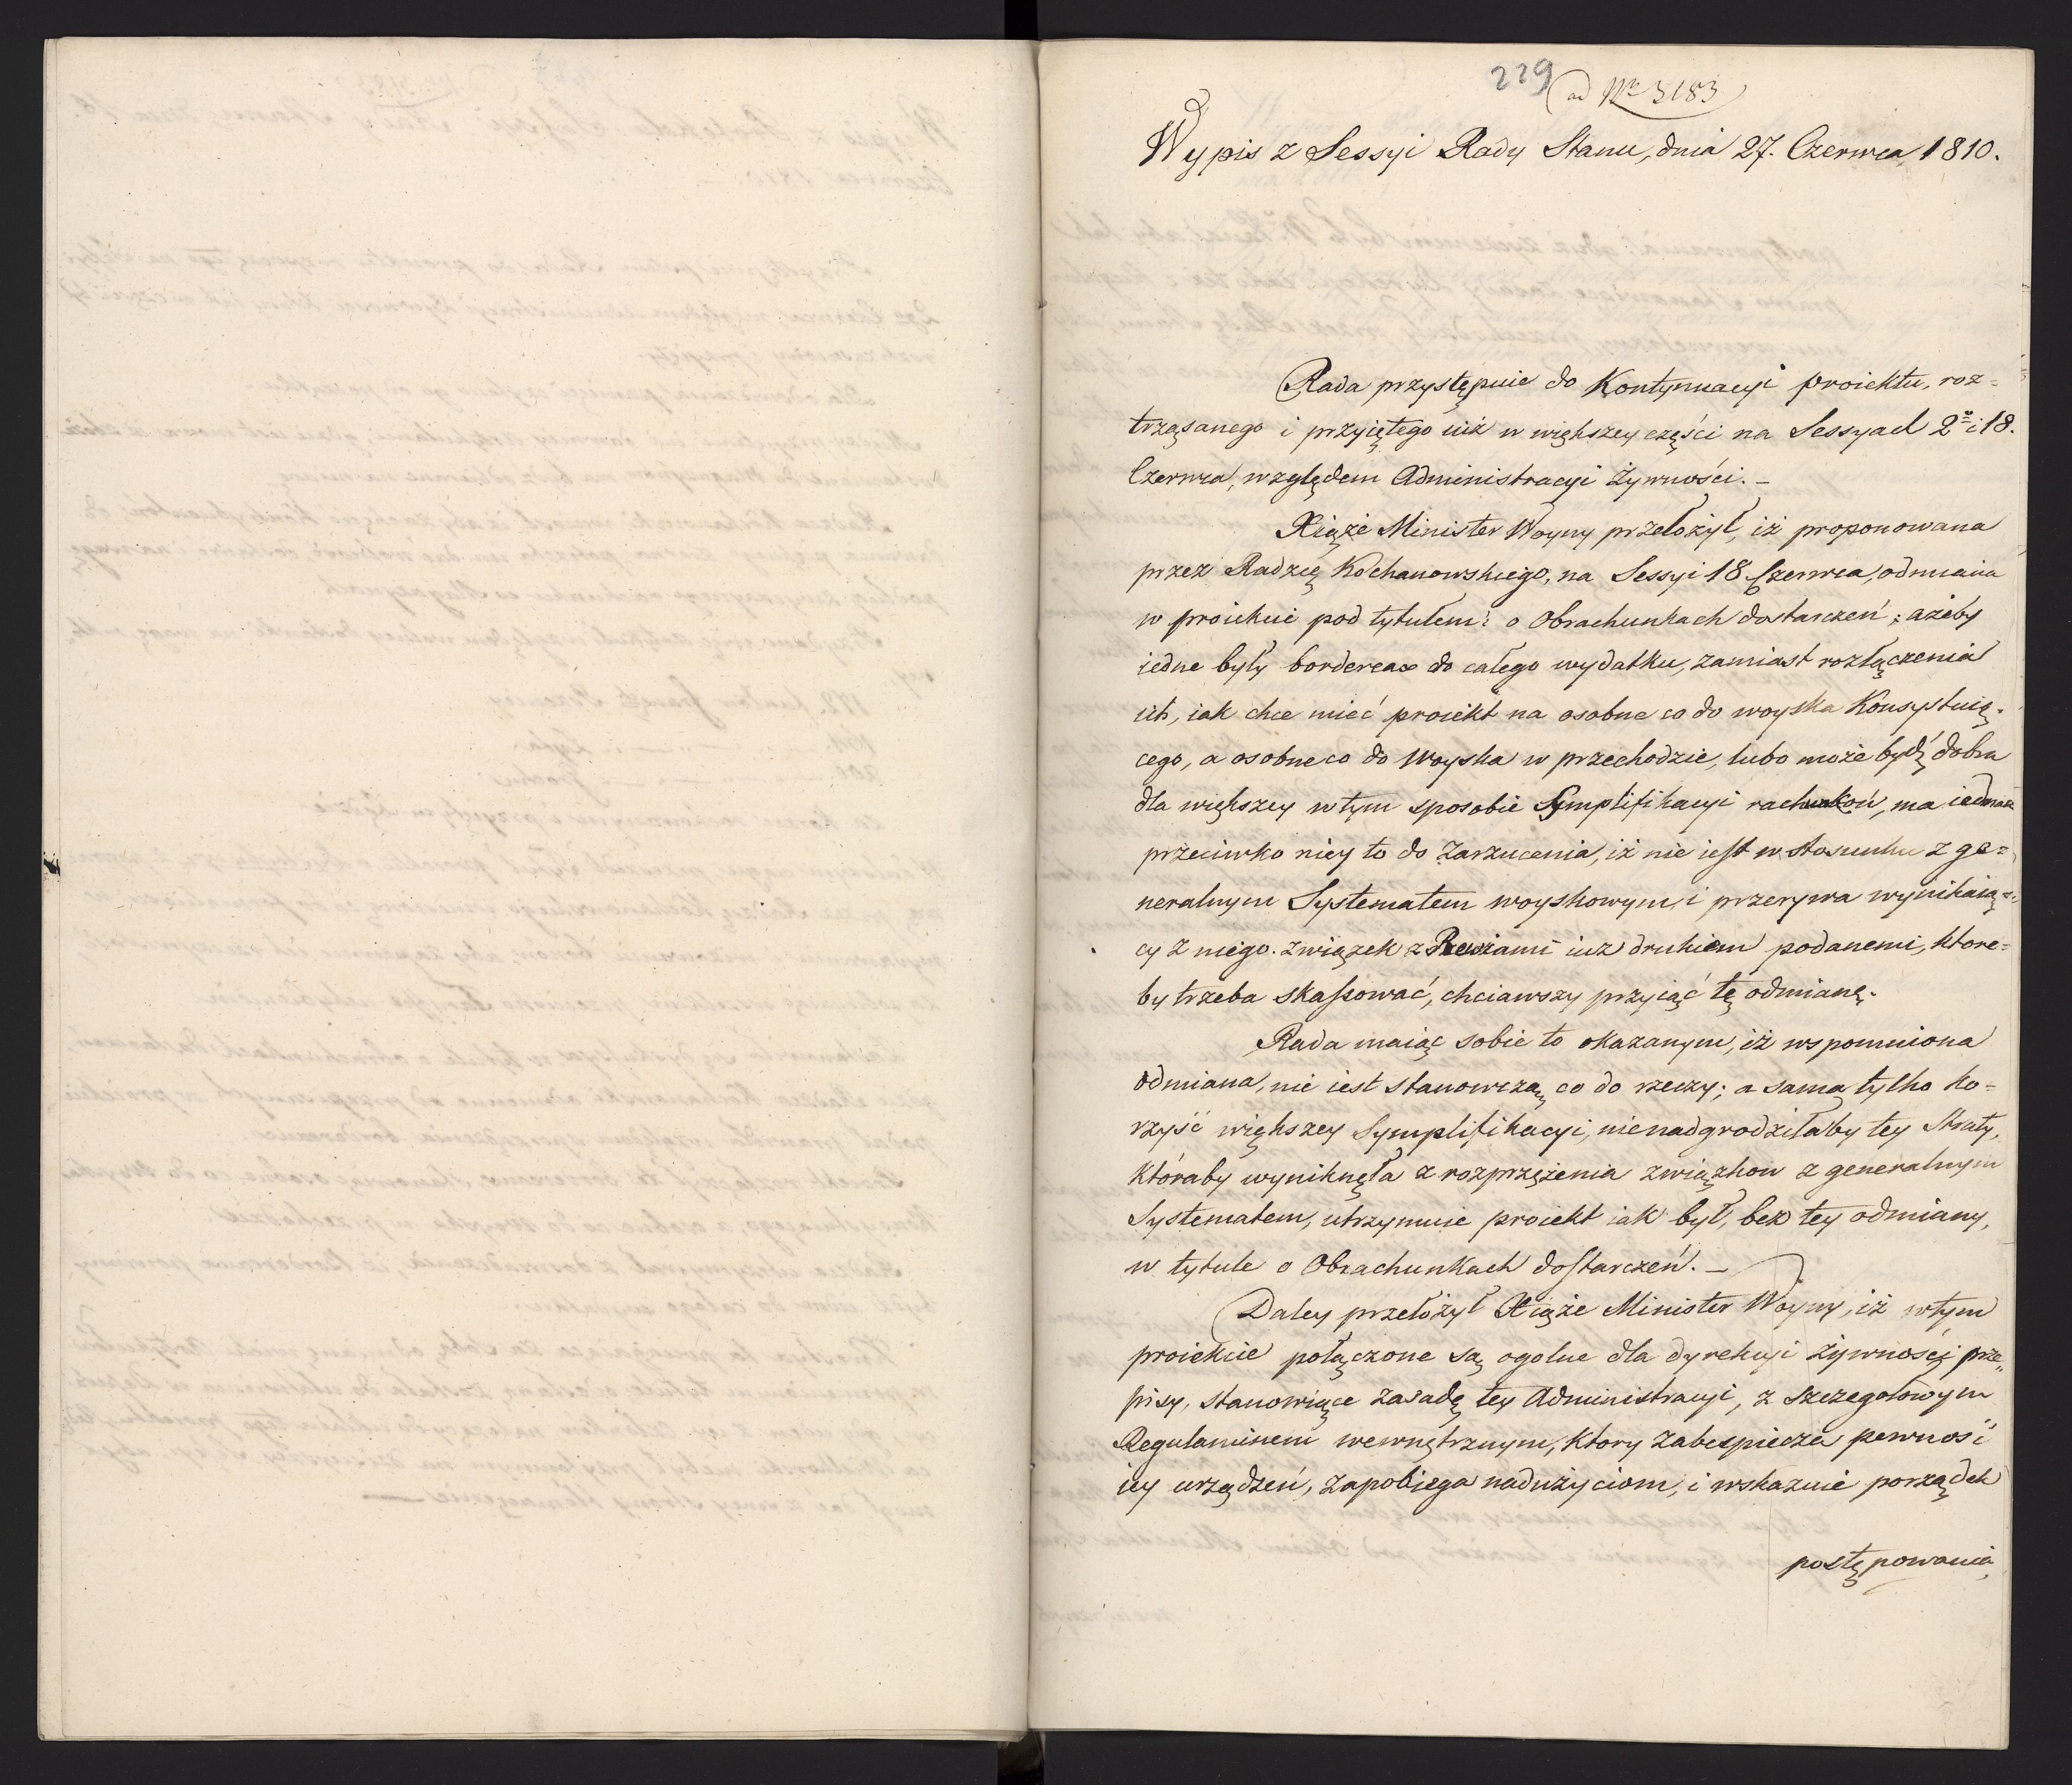 229
ad Nr 3183
Wypis z Sessyi Rady Stanu, dnia 27. Czerwca 1810.
Rada przystępuie do Kontynuacyi proiektu, roz=
trząsanego i przyiętego iuż w większey części na Sessyach 2º i 18.
Czerwca, względem Administracyi Żywności. –
Xiąże Minister Woyny przełożył, iż proponowana
przez Radzcę Kochanowskiego, na Sessyi 18 Czerwca, odmiana
w proiekcie pod tytułem: o Obrachunkach dostarczeń; ażeby
iedne były bordereaux do całego wydatku, zamiast rozłączenia
ich, iak chce mieć proiekt na osobne co do woyska Konsystuią-
cego, a osobne co do Woyska w przechodzie, lubo może bydź dobra
dla większey w tym sposobie Symplifikacyi rachunków, ma iednak
przeciwko niey to do zarzucenia, iż nie iest w stosunku z ge=
neralnym Systematem woyskowym, i przerywa wynikaią=
cy z niego związek z Rewiami iuż drukiem podanemi, które=
by trzeba skassować, chciawszy przyiąć tę odmianę.
Rada maiąc sobie to okazanym, iż wspomniona
odmiana, nie iest stanowczą co do rzeczy; a sama tylko ko=
rzyść większey Symplifikacyi, nienadgrodziłaby tey straty,
któraby wyniknęła z rozprzężenia związkow z generalnym
Systematem, utrzymuie proiekt iak był, bez tey odmiany,
w tytule o Obrachunkach dostarczeń. –
Daley przełożył Xiąże Minister Woyny, iż w tym
proiekcie połączone są ogolne dla dyrekcyi żywności prze=
pisy, stanowiące zasadę tey Administracyi, z szczegołowym
Regulaminem wewnętrznym, ktory zabespiecza pewność
iey urządzeń, zapobiega nadużyciom, i wskazuie porządek
postępowania,